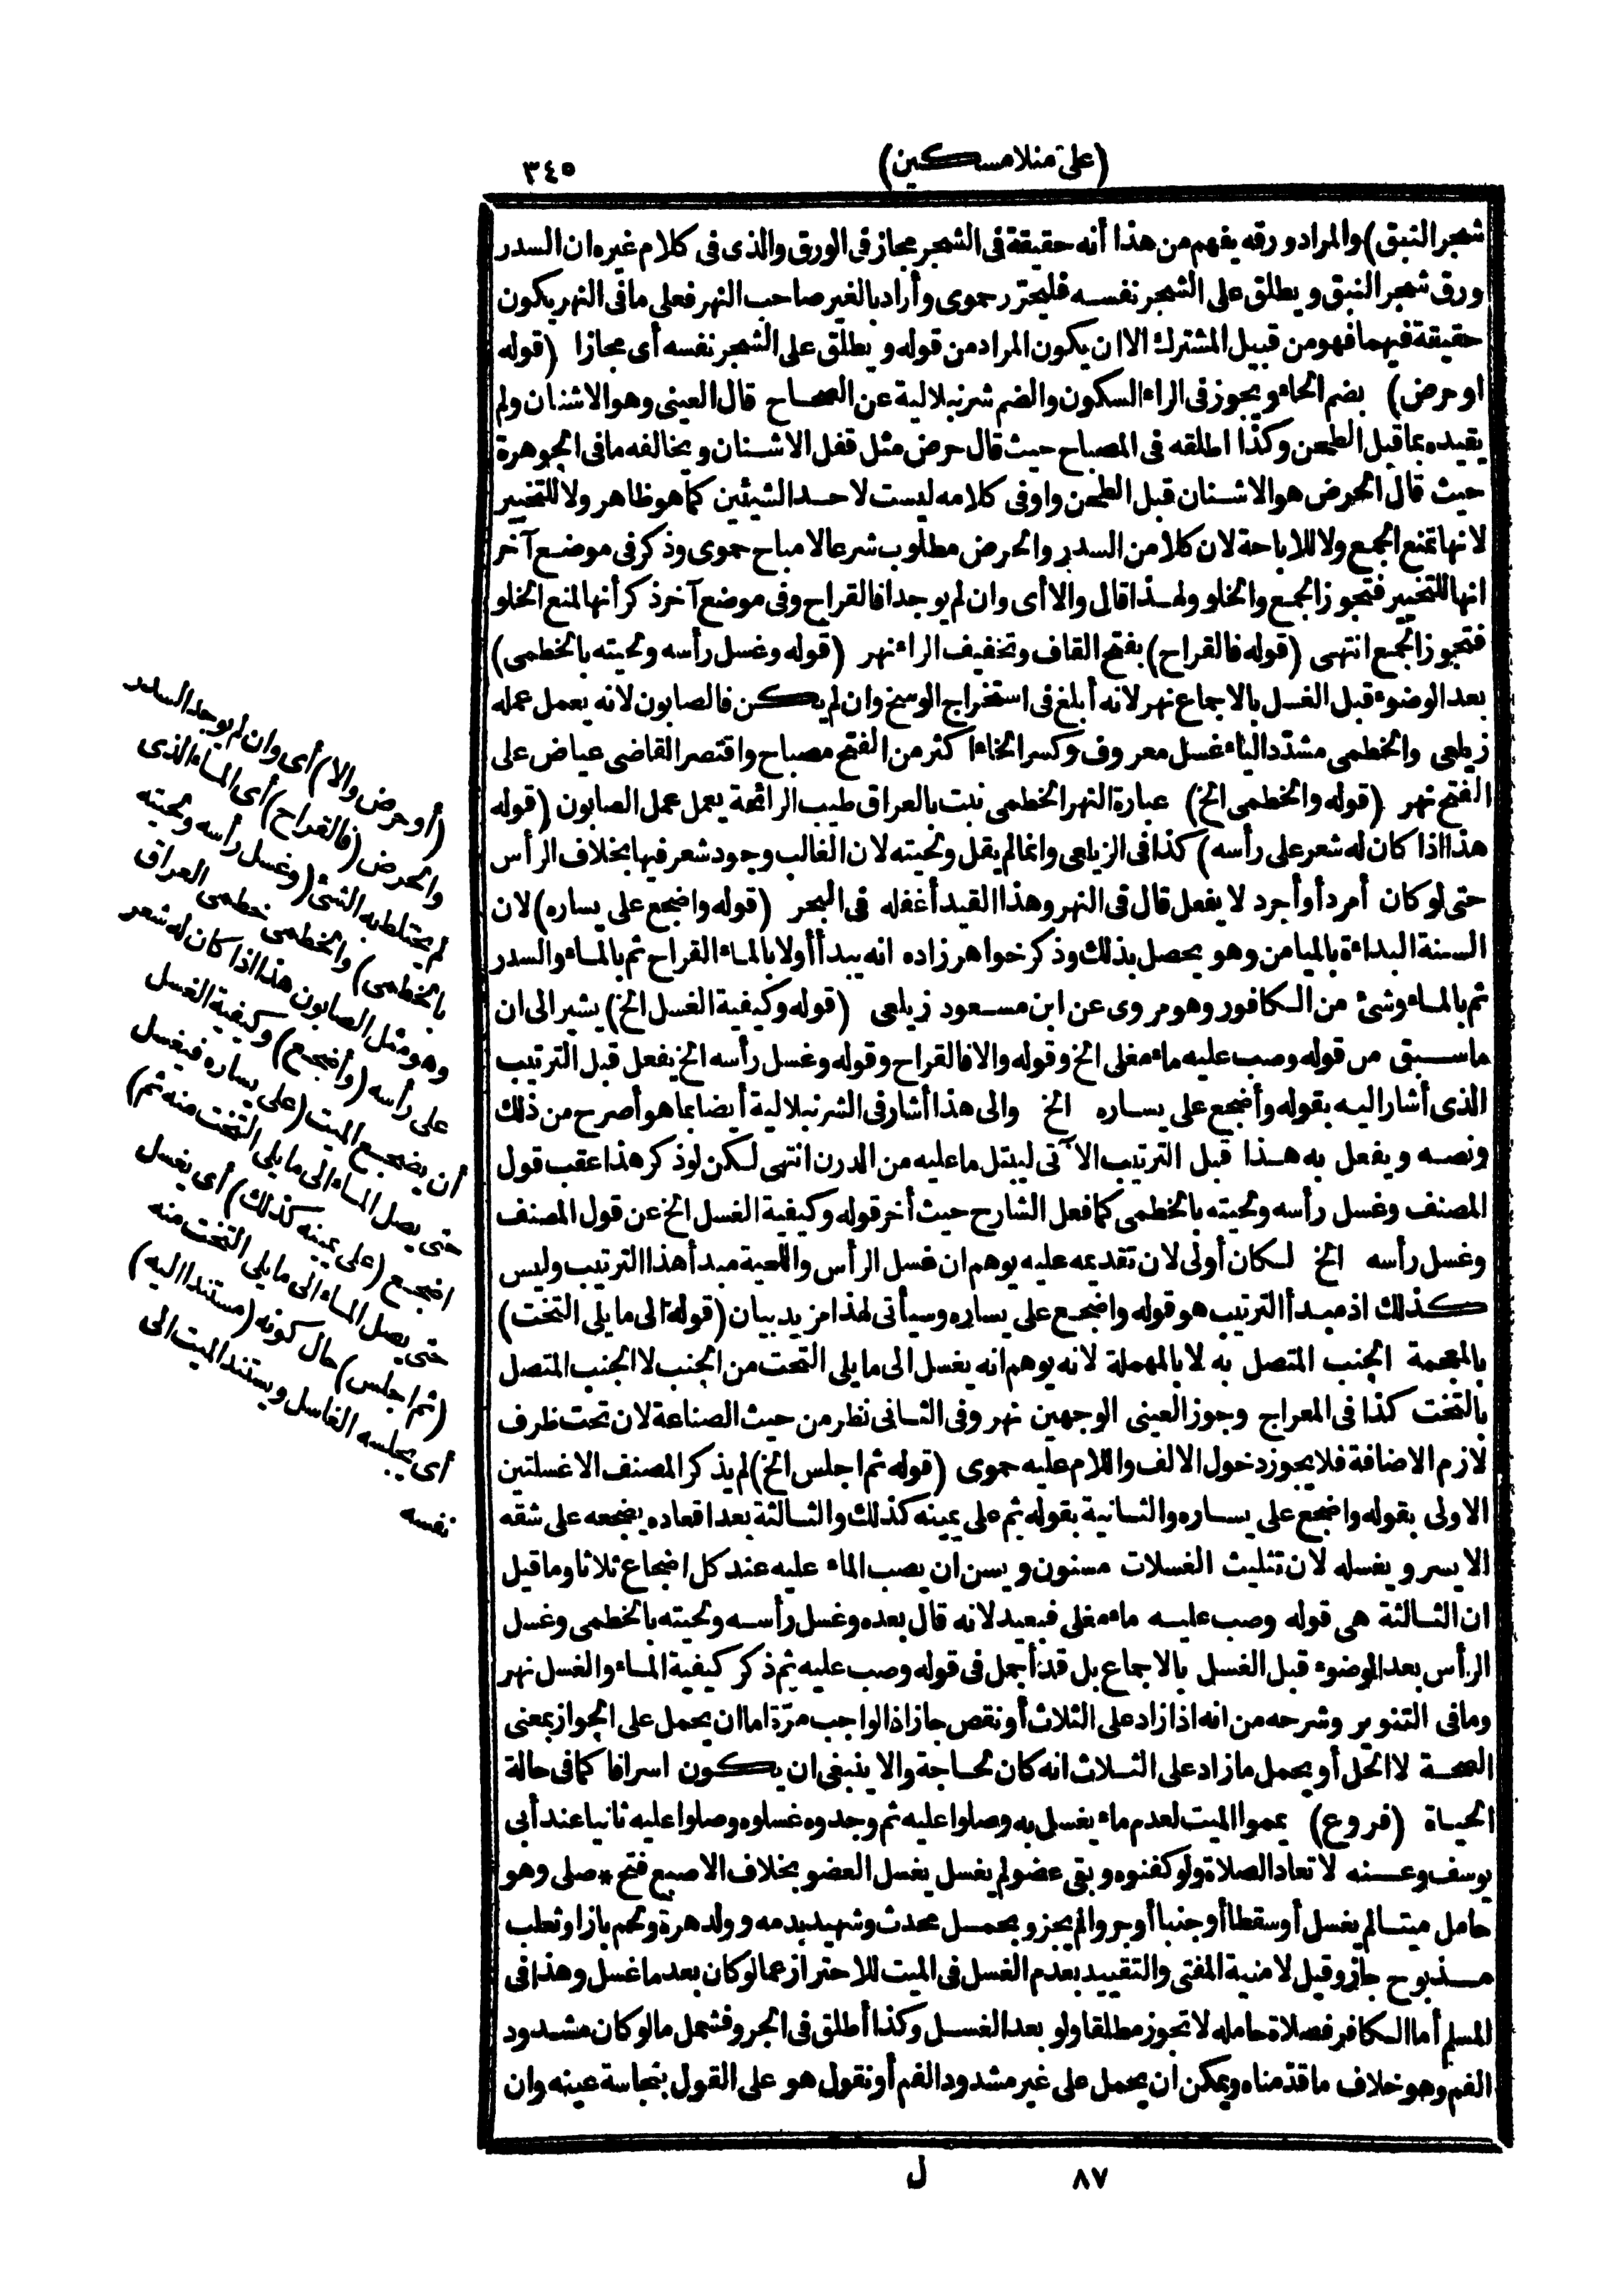 (على منلا مسكين)
٣٤٥
شجر النبق) والمراد ورقه يفهم من هذا أنه حقيقة فى الشجر مجاز فى الورق والذى فى كلام غيره ان السدر
ورق شجر النبق ويطلق على الشجر نفسه فليحرّر حموى وأراد بالغير صاحب النهر فعلى ما فى النهر يكون
حقيقة فيهما فهو من قبيل المشترك الا ان يكون المراد من قوله ويطلق على الشجر نفسه أى مجازا (قوله
او حرض) بضم الحاء ويجوز فى الراء السكون والضم شرنبلالية عن الصحاح قال العينى وهو الاشنان ولم
يقيده بما قبل الطحن وكذا اطلقه فى المصباح حيث قال حرض مثل قفل الاشنان ويخالفه ما فى الجوهرة
حيث قال الحرض هو الاشنان قبل الطحن واو فى كلامه ليست لاحد الشيئين كما هو ظاهر ولا للتخيير
لانها تمنع الجمع ولا للاباحة لان كلا من السدر والحرض مطلوب شرعا لا مباح حموى وذكر فى موضع آخر
انها للتخيير فتجوز الجمع والخلو ولهذا قال والا أى وان لم يوجدا فالقراح وفى موضع آخر ذكر أنها لمنع الخلو
فتجوز الجمع انتهى (قوله فالقراح) بفتح القاف وتخفيف الراء نهر (قوله وغسل رأسه ولحيته بالخطمى)
بعد الوضوء قبل الغسل بالاجماع نهر لانه أبلغ فى استخراج الوسخ وان لم يكن فالصابون لانه يعمل عمله
زيلعى والخطمى مشدّد الياء غسل معروف وكسر الخاء اكثر من الفتح مصباح واقتصر القاضى عياض على
الفتح نهر (قوله والخطمى الخ) عبارة النهر الخطمى نبت بالعراق طيب الرائحة يعمل عمل الصابون (قوله
هذا اذا كان له شعر على رأسه) كذا فى الزيلعى وانما لم يقل ولحيته لان الغالب وجود شعر فيها بخلاف الرأس
حتى لو كان أمرد أو أجرد لا يفعل قال فى النهر وهذا القيد أغفله فى البحر (قوله واضجع على يساره) لان
السنة البداءة بالميامن وهو يحصل بذلك وذكر خواهر زاده انه يبدأ أولا بالماء القراح ثم بالماء والسدر
ثم بالماء وشئ من الكافور وهو مروى عن ابن مسعود زيلعى (قوله وكيفية الغسل الخ) يشير الى ان
ما سبق من قوله وصب عليه ماء مغلى الخ وقوله والا فالقراح وقوله وغسل رأسه الخ يفعل قبل الترتيب
الذى أشار اليه بقوله وأضجع على يساره الخ والى هذا أشار فى الشرنبلالية أيضا بما هو أصرح من ذلك
ونصه ويفعل به هذا قبل الترتيب الآتى ليبتل ما عليه من الدرن انتهى لكن لو ذكر هذا عقب قول
المصنف وغسل رأسه ولحيته بالخطمى كما فعل الشارح حيث أخر قوله وكيفية الغسل الخ عن قول المصنف
وغسل رأسه الخ لكان أولى لان تقديمه عليه يوهم ان غسل الرأس واللحية مبدأ هذا الترتيب وليس
كذلك اذ مبدأ الترتيب هو قوله واضجع على يساره وسيأتى لهذا مزيد بيان (قوله الى ما يلى التخت)
بالمعجمة الجنب المتصل به لا بالمهملة لانه يوهم انه يغسل الى ما يلى التحت من الجنب لا الجنب المتصل
بالتخت كذا فى المعراج وجوز العينى الوجهين نهر وفى الثانى نظر من حيث الصناعة لان تحت ظرف
لازم الاضافة فلا يجوز دخول الالف واللام عليه حموى (قوله ثم اجلس الخ) لم يذكر المصنف الا غسلتين
الاولى بقوله واضجع على يساره والثانية بقوله ثم على يمينه كذلك والثالثة بعد اقعاده يضجعه على شقه
الايسر ويغسله لان تثليث الغسلات مسنون ويسن ان يصب الماء عليه عند كل اضجاع ثلاثا وما قيل
ان الثالثة هى قوله وصب عليه ماء مغلى فبعيد لانه قال بعده وغسل رأسه ولحيته بالخطمى وغسل
الرأس بعد الوضوء قبل الغسل بالاجماع بل قد أجمل فى قوله وصب عليه ثم ذكر كيفية الماء والغسل نهر
وما فى التنوير وشرحه من انه اذا زاد على الثلاث أو نقص جاز اذ الواجب مرّة اما ان يحمل على الجواز بمعنى
الصحة لا الحل أو يحمل ما زاد على الثلاث انه كان لحاجة والا ينبغى ان يكون اسرافا كما فى حالة
الحياة (فروع) يمموا الميت لعدم ماء يغسل به وصلوا عليه ثم وجدوه غسلوه وصلوا عليه ثانيا عند أبى
يوسف وعنه لا تعاد الصلاة ولو كفنوه وبقى عضو لم يغسل يغسل العضو بخلاف الاصبع فتح * صلى وهو
حامل ميتا لم يغسل أو سقطا أو جنبا أو جروا لم يجز وبحمل محدث وشهيد بدمه وولد هرة ولحم بازا وثعلب
مذبوح جاز وقيل لا منية المفتى والتقييد بعدم الغسل فى الميت للاحتراز عما لو كان بعد ما غسل وهذا فى
المسلم أما الكافر فصلاة حامله لا تجوز مطلقا ولو بعد الغسل وكذا أطلق فى الجرو فشمل ما لو كان مشدود
الفم وهو خلاف ما قدّمناه ويمكن ان يحمل على غير مشدود الفم أو نقول هو على القول بنجاسة عينه وان
(أو حرض والا) أى وان لم يوجد السدر
والحرض (فالقراح) أى الماء الذى
لم يختلط به الشئ (وغسل رأسه ولحيته
بالخطمى) والخطمى خطمى العراق
وهو مثل الصابون هذا اذا كان له شعر
على رأسه (وأضجع) وكيفية الغسل
أن يضجع الميت (على يساره فيغسل
حتى يصل الماء الى ما يلى التخت منه ثم)
اضجع (على يمينه كذلك) أى يغسل
حتى يصل الماء الى ما يلى التخت منه
(ثم اجلس) حال كونه (مستندا اليه)
أى يجلسه الغاسل ويستند الميت الى
نفسه
٨٧
ل